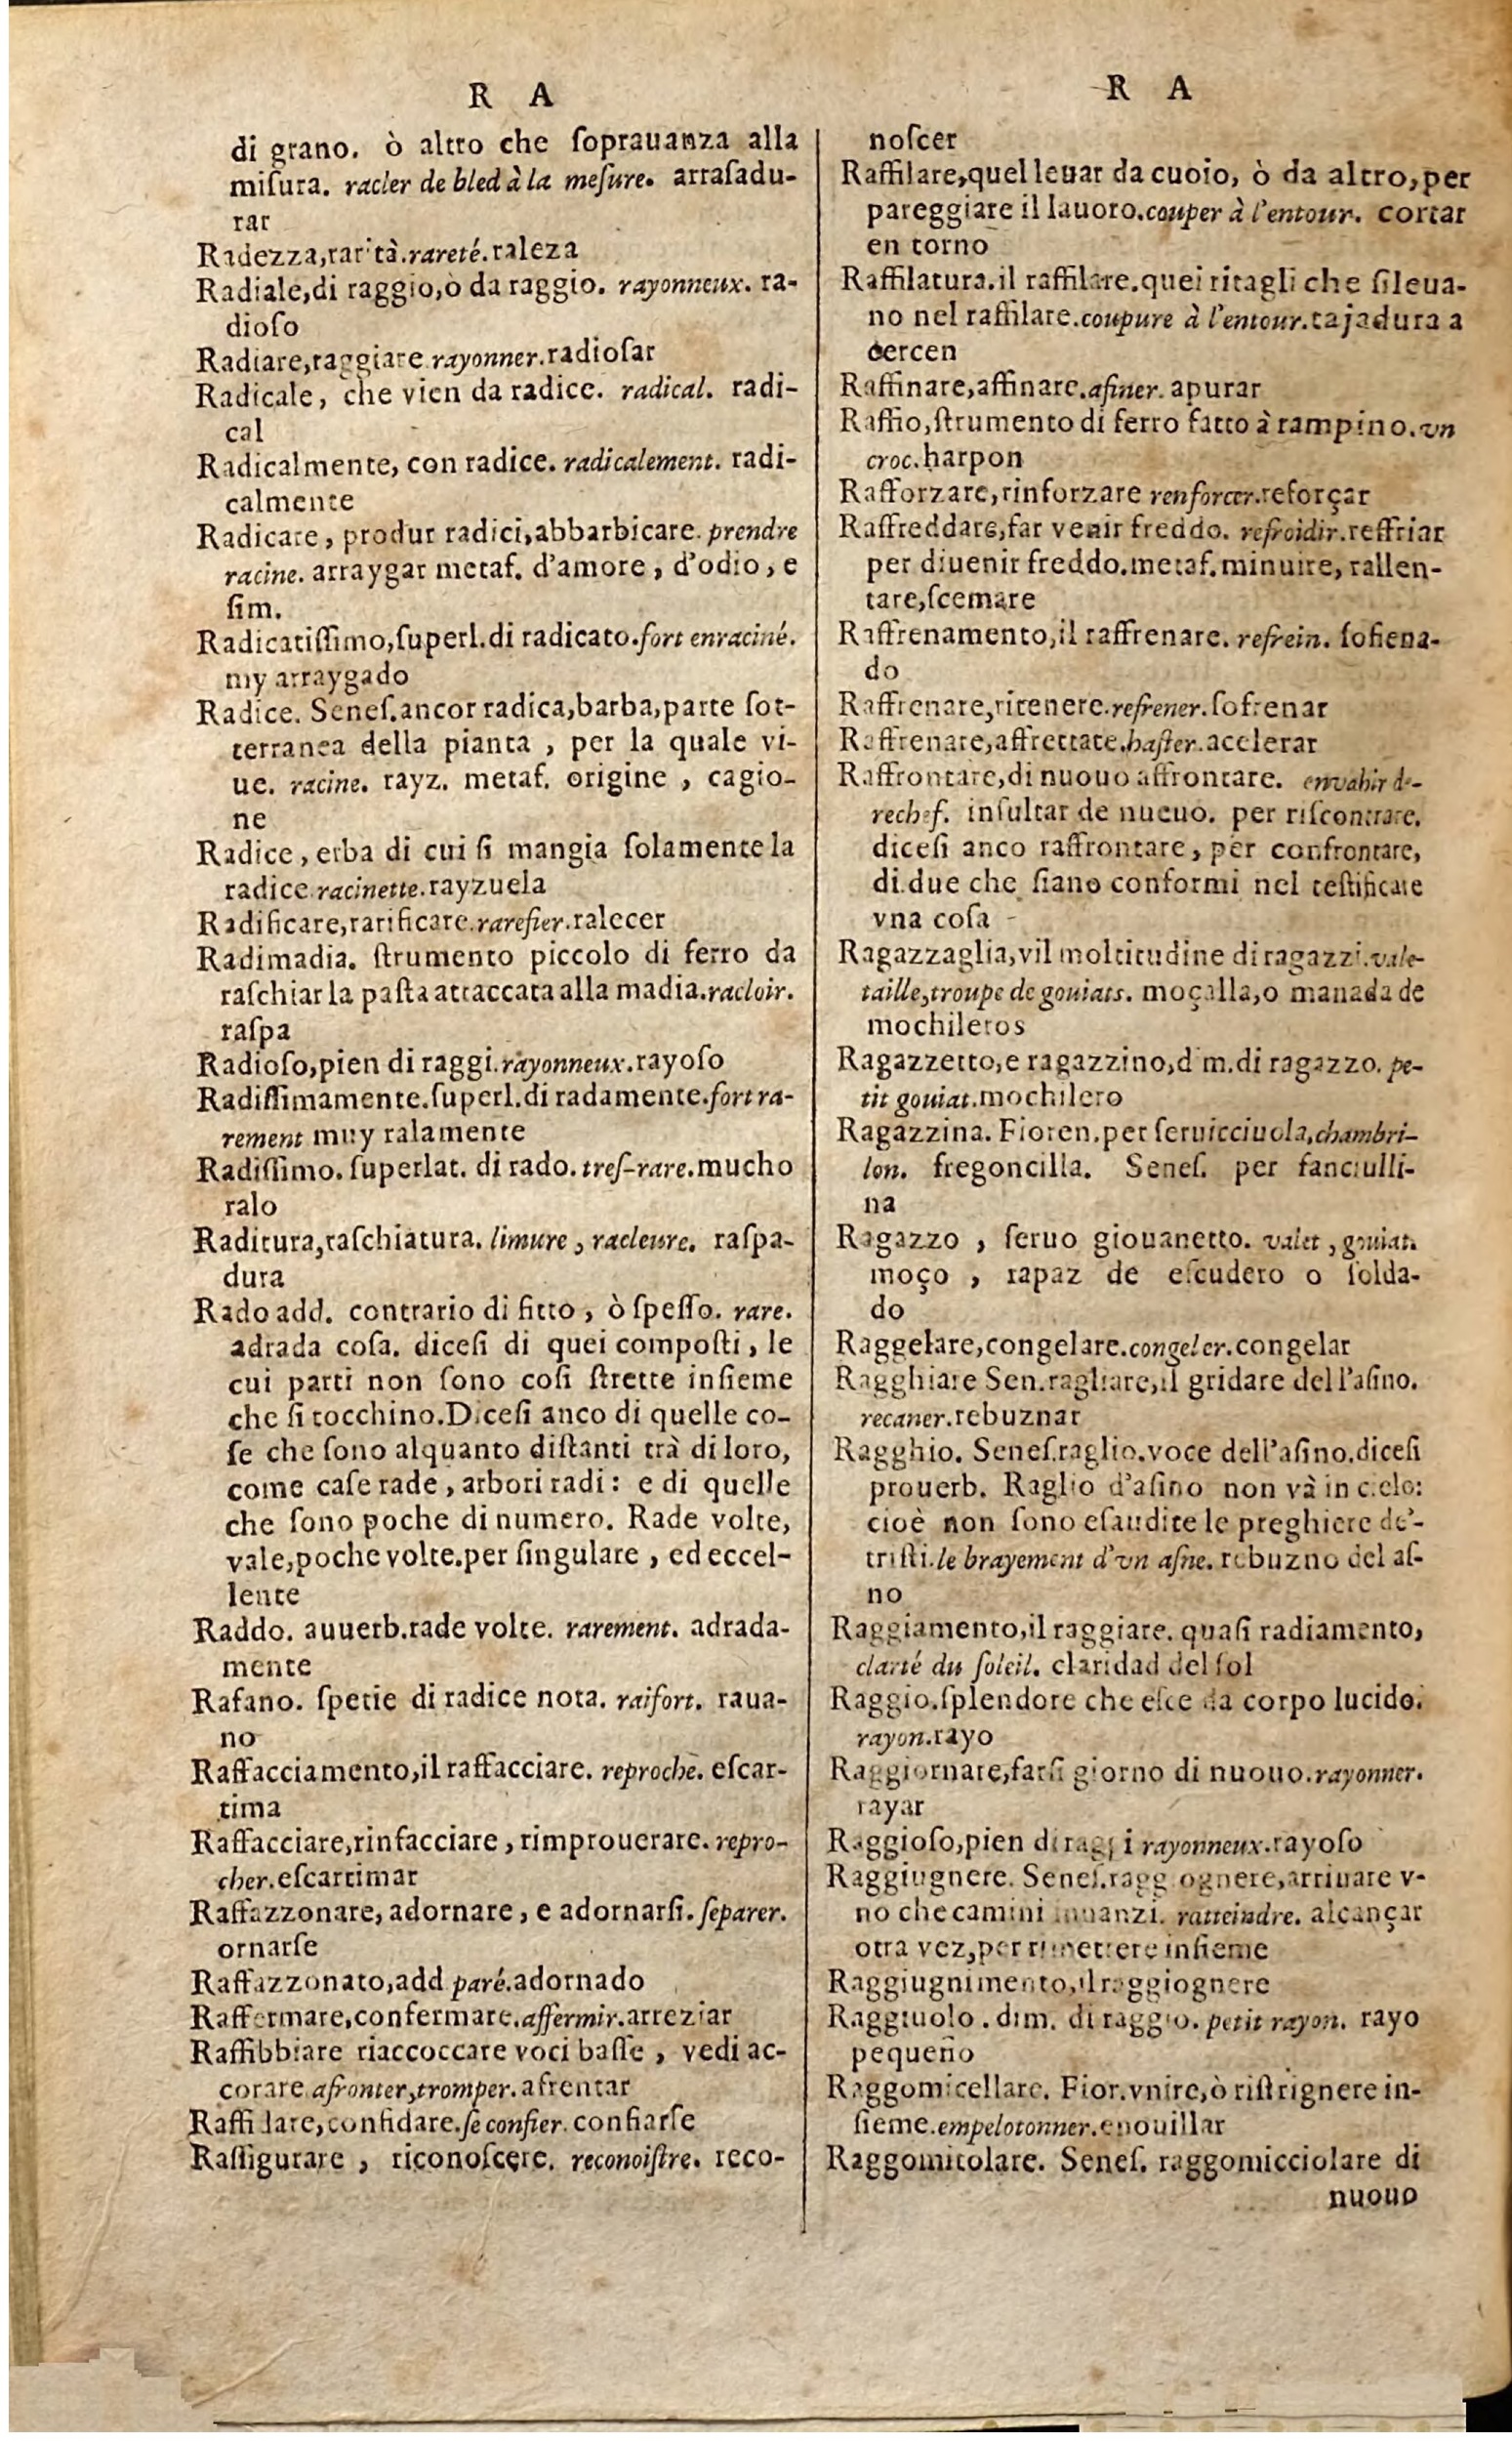 R A
di grano. ò altro che ſoprauanza alla
miſura. racler de bled à la meſure. arraſadu-
rar
Radezza,rarità.rareté.raleza
Radiale,di raggio,ò da raggio. rayonneux. ra-
dioſo
Radiare,raggiare rayonner.radioſar
Radicale, che vien da radice. radical. radi-
cal
Radicalmente, con radice. radicalement. radi-
calmente
Radicare, produr radici,abbarbicare. prendre
racine. arraygar metaf. d'amore, d'odio, e
ſim.
Radicatiſſimo,ſuperl.di radicato.fort enraciné.
my arraygado
Radice. Seneſ.ancor radica,barba,parte ſot-
terranea della pianta, per la quale vi-
ue. racine. rayz. metaf. origine, cagio-
ne
Radice, erba di cui ſi mangia ſolamente la
radice.racinette.rayzuela
Radificare,rarificare.rarefier.ralecer
Radimadia. ſtrumento piccolo di ferro da
raſchiar la paſta attaccata alla madia.racloir.
raſpa
Radioſo,pien di raggi.rayonneux.rayoſo
Radiſſimamente.ſuperl.di radamente.fort ra-
rement muy ralamente
Radiſſimo. ſuperlat. di rado. treſ-rare.mucho
ralo
Raditura,raſchiatura. limure, racleure. raſpa-
dura
Rado add. contrario di fitto, ò ſpeſſo. rare.
adrada coſa. diceſi di quei compoſti, le
cui parti non ſono coſi ſtrette inſieme
che ſi tocchino.Diceſi anco di quelle co-
ſe che ſono alquanto diſtanti trà di loro,
come caſe rade, arbori radi: e di quelle
che ſono poche di numero. Rade volte,
vale,poche volte.per ſingulare, ed eccel-
lente
Raddo. auuerb.rade volte. rarement. adrada-
mente
Rafano. ſpetie di radice nota. raifort. raua-
no
Raffacciamento,il raffacciare. reproche. eſcar-
tima
Raffacciare,rinfacciare, rimprouerare. repro-
cher.eſcartimar
Raffazzonare, adornare, e adornarſi. ſeparer.
ornarſe
Raffazzonato,add paré.adornado
Raffermare,confermare.affermir.arreziar
Raffibbiare riaccoccare voci baſſe, vedi ac-
corare.afronter,tromper.afrentar
Raffidare,confidare.ſe confier.confiarſe
Raffigurare, riconoſcere. reconoiſtre. reco-
R A
noſcer
Raffilare,quel leuar da cuoio, ò da altro,per
pareggiare il lauoro.couper à l'entour. cortar
en torno
Raffilatura.il raffilare.quei ritagli che ſileua-
no nel raffilare.coupure à l'entour.tajadura a
cercen
Raffinare,affinare.afiner. apurar
Raffio,ſtrumento di ferro fatto à rampino.vn
croc.harpon
Rafforzare,rinforzare renforcer.reforçar
Raffreddare,far venir freddo. refroidir.reffriar
per diuenir freddo.metaf.minuire, rallen-
tare,ſcemare
Raffrenamento,il raffrenare. refrein. ſofiena-
do
Raffrenare,ritenere.refrener.ſofrenar
Raffrenare,affrettate.haſter.acelerar
Raffrontare,di nuouo affrontare. envahir de-
rechef. inſultar de nueuo. per riſcontrare.
diceſi anco raffrontare, per confrontare,
di.due che ſiano conformi nel teſtificare
vna coſa
Ragazzaglia,vil moltitudine di ragazzi.vale-
taille,troupe de gouiats. moçalla,o manada de
mochileros
Ragazzetto,e ragazzino,dim.di ragazzo. pe-
tit gouiat.mochilero
Ragazzina. Fioren.per ſeruicciuola,chambri-
lon. fregoncilla. Seneſ. per fanciulli-
na
Ragazzo, ſeruo giouanetto. valet, gouiat.
moço, rapaz de eſcudero o ſolda-
do
Raggelare,congelare.congeler.congelar
Ragghiare Sen.ragliare,il gridare dell'aſino.
recaner.rebuznar
Ragghio. Seneſ.raglio.voce dell'aſino.diceſi
prouerb. Raglio d'aſino non và in cielo:
cioè non ſono eſaudite le preghiere de'-
triſti.le brayement d'vn aſne. rebuzno del aſ-
no
Raggiamento,il raggiare. quaſi radiamento,
clarté du ſoleil. claridad del ſol
Raggio.ſplendore che eſce da corpo lucido.
rayon.rayo
Raggiornare,farſi giorno di nuouo.rayonner.
rayar
Raggioſo,pien di raggi rayonneux.rayoſo
Raggiugnere. Seneſ.raggiognere,arriuare v-
no che camini innanzi. ratteindre. alcançar
otra vez,per rimettere inſieme
Raggiugnimento,il raggiognere
Raggiuolo. dim. di raggio. petit rayon. rayo
pequeño
Raggomicellare. Fior.vnire,ò riſtrignere in-
ſieme.empelotonner.enouillar
Raggomitolare. Seneſ. raggomicciolare di
nuouo